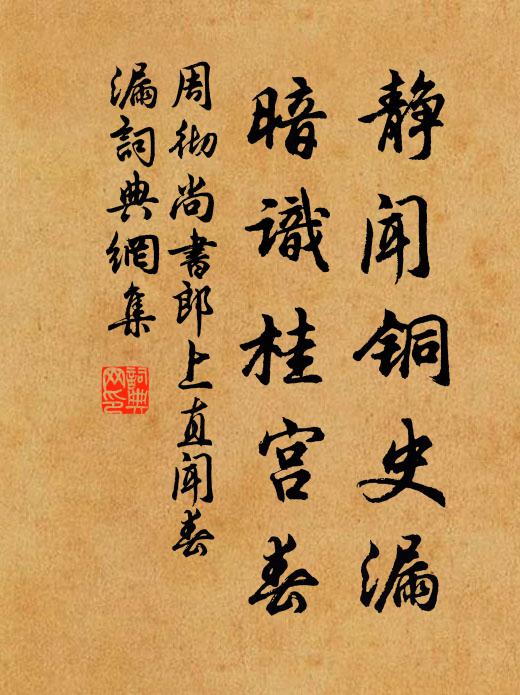 静闻铜史漏
暗识桂宫春
周彻尚書郎上直聞春
漏詞典網集
詞典网印